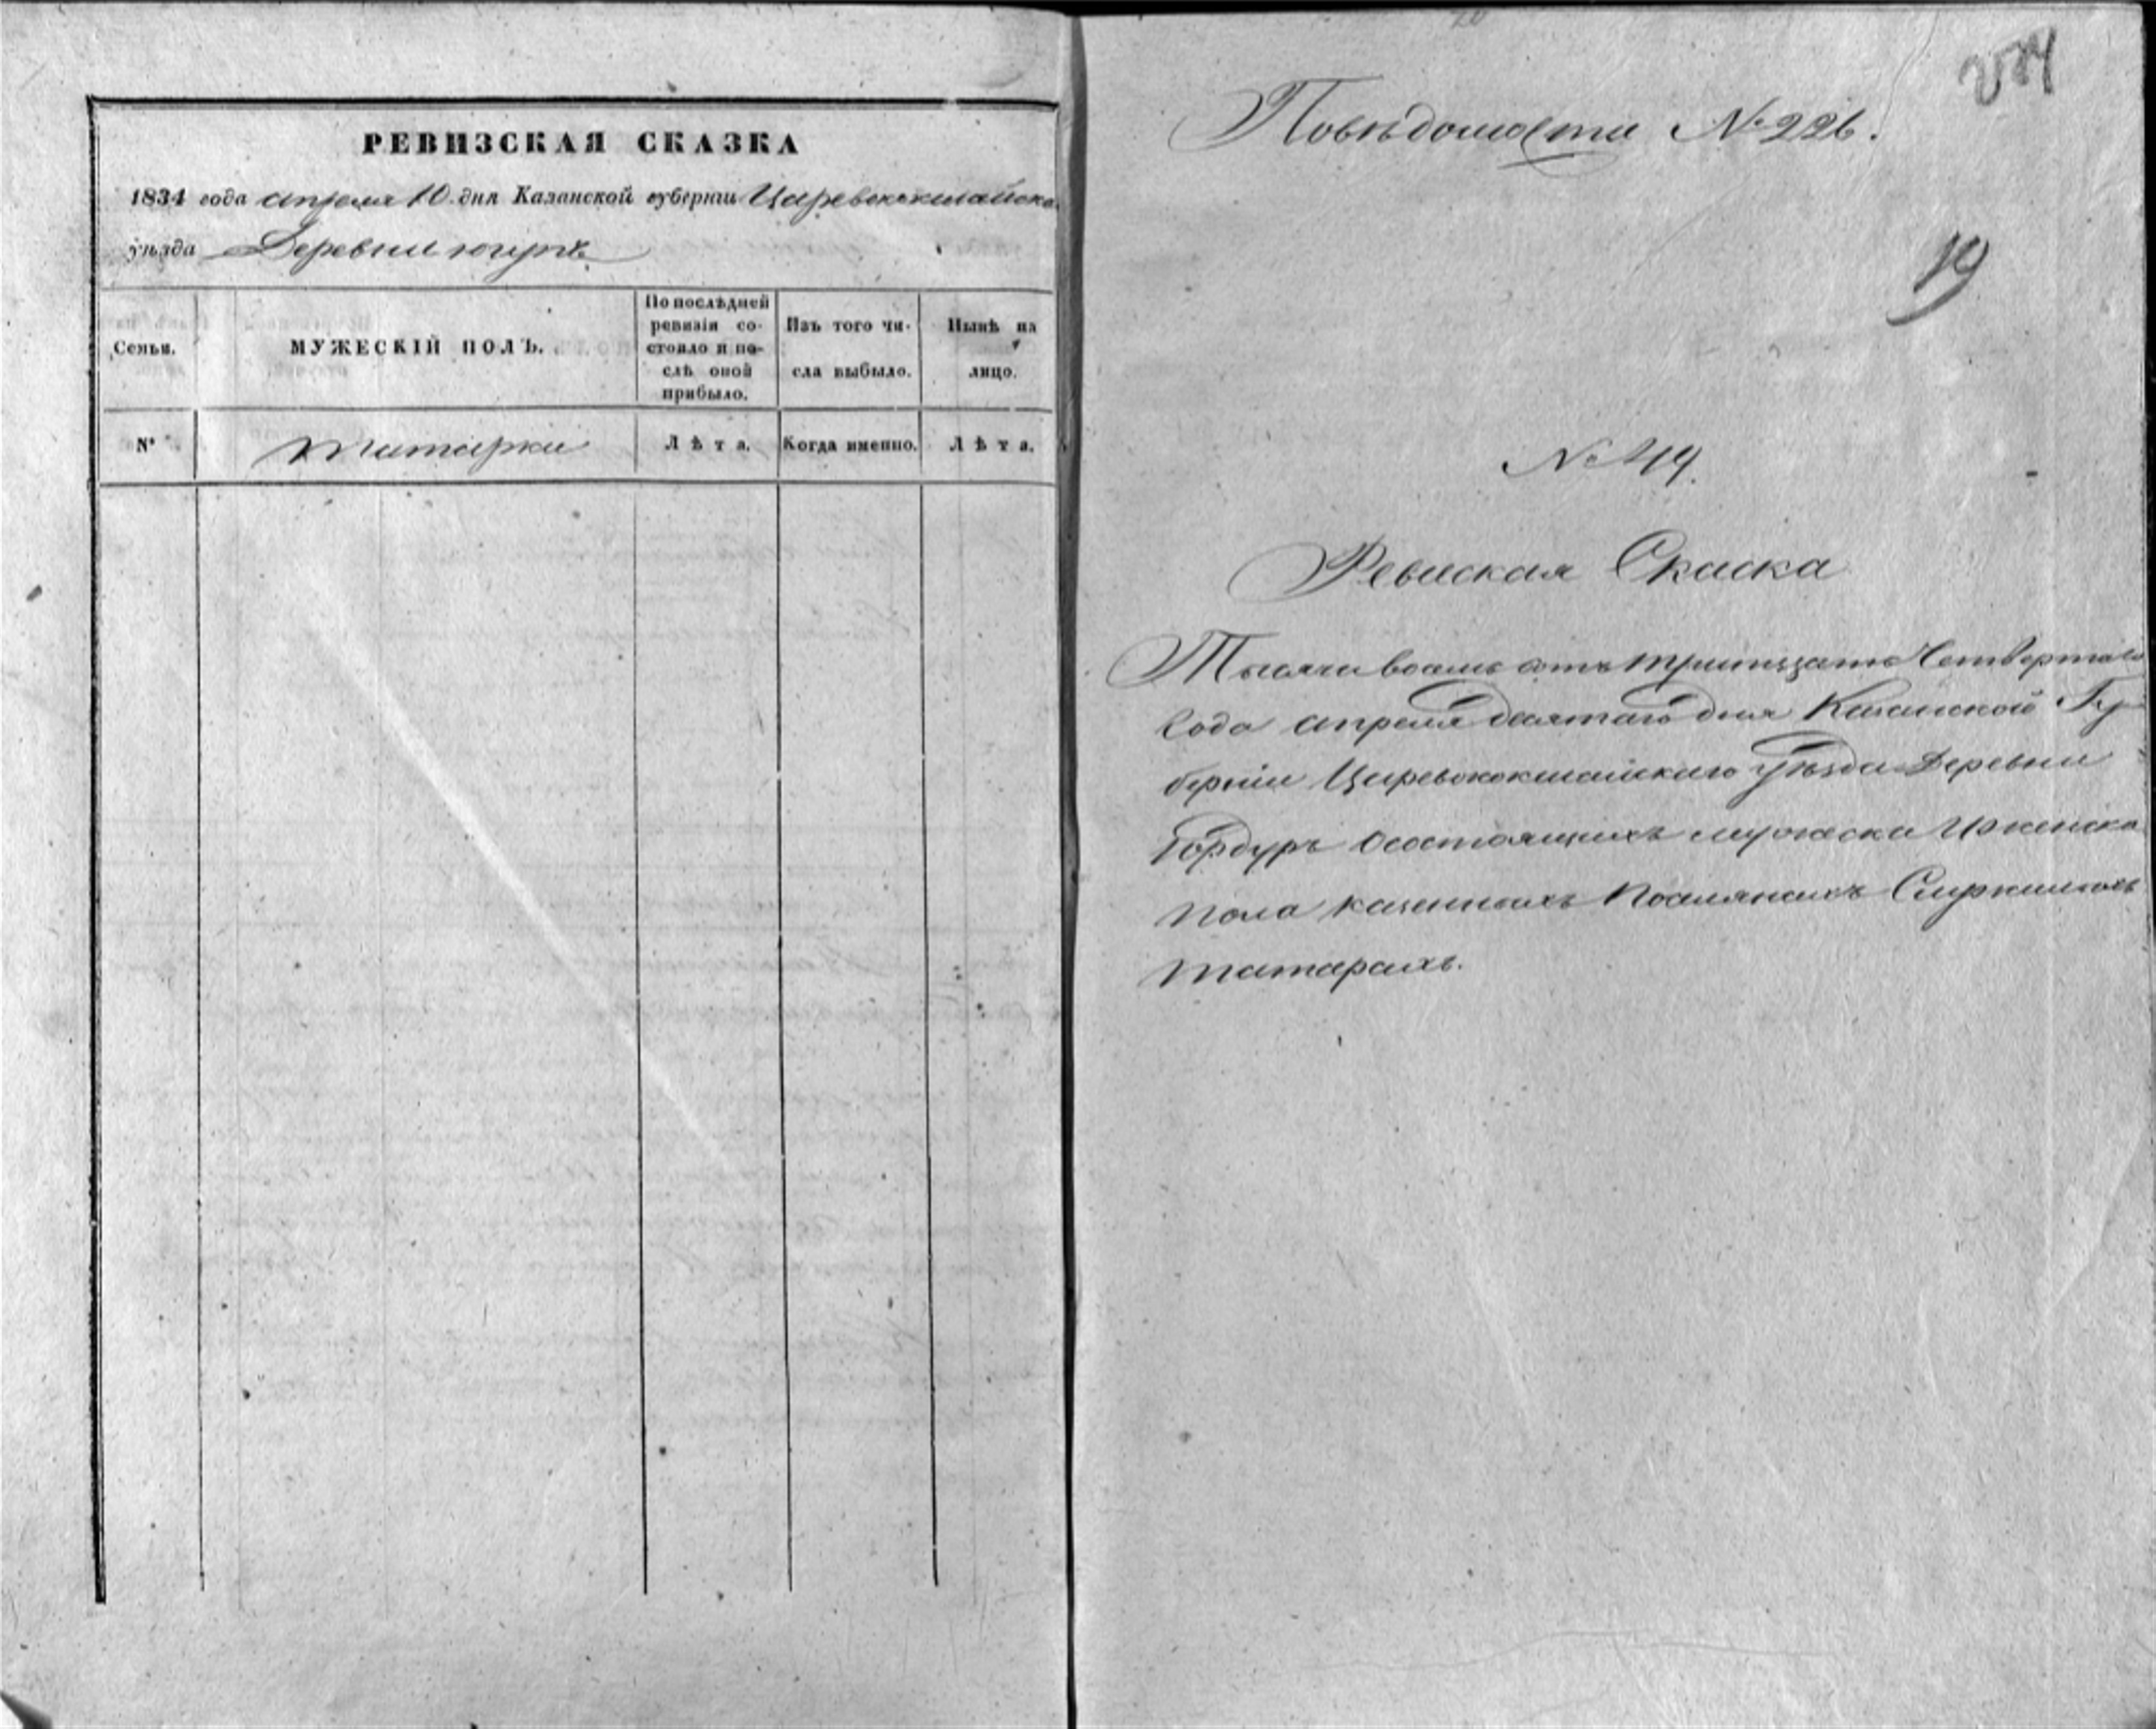 РЕВИЗСКАЯ СКАЗКА
1834 года апреля 10 дня Казанской губернии Царевококшайска
уѣзда Деревни
Семьи.
МУЖЕСКІЙ ПОЛЪ.
По послѣдней
ревизіи со-
стояло и по-
слѣ оной
прибыло.
Изъ того чи-
сла выбыло.
Нынѣ на
лицо.
№
татарки
Лѣта.
Когда именно.
Лѣта.
Повѣдомости № 226.
19
№
Ревиская Скаска
Тысяча восемь сотъ тритцать Четвертаго
Года апреля десятаго дня Казанской Гу
берніи Царевококшайскаго уѣзда Деревни
состоящихъ мужеска Иженска
пола казенныхъ поселянахъ
татарахъ.